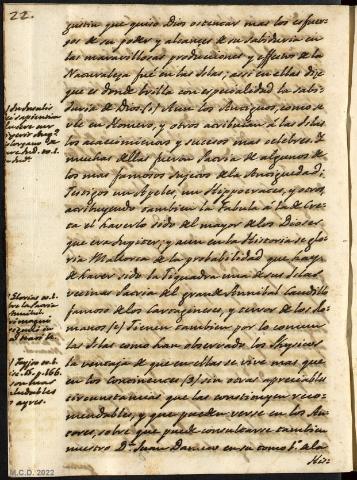 22.
gustin que quiso Dios ostentar mas los esfuer-
zos de su poder y alcances de su sabiduria en
las maravillosas producciones y effectos de la
Naturaleza fue en las Islas; assi en ellas dize
que es donde brilla con especialidad la sabi-
duria de Dios. (1) Aun los Antiguos, como se
ve en Homero, y otros atribuian á las Islas
los acaecimientos y sucesos mas celebres. Y
muchas de ellas fueron Patria de algunos de
los mas famosos sugetos de la Antiguedad:
Testigos un Apeles, un Hippocrates, y otros,
atribuyendo tambien la Fabula á la de Cre-
ta el haverlo sido del mayor de los Dioses
que era Jupiter; y aun en la Historia se glo-
ria Mallorca de la probabilidad que hay
de haver sido la Tiquadra una de sus Islas
vecinas Patria del grande Annibal Caudillo
famoso de los Cartagineses, y terror de los Ro-
manos (2) Tienen tambien por lo comun
las Islas como han observado los Physicos
la ventaja de que en ellas se vive mas que
en los Continentes (3) sin otras apreciables
circunstancias que las constituyen reco-
mendables, y que pueden verse en los Au-
tores, sobre que puede consultarse tambien
nuestro Dr. Juan Dameto en su tomo 1º. de la
His-
1 In Insulis
sapientia
2 Florias
tria
3 Feyjoo
p. 166.
son mas
saludables
ayres.
M.C.D. 2022